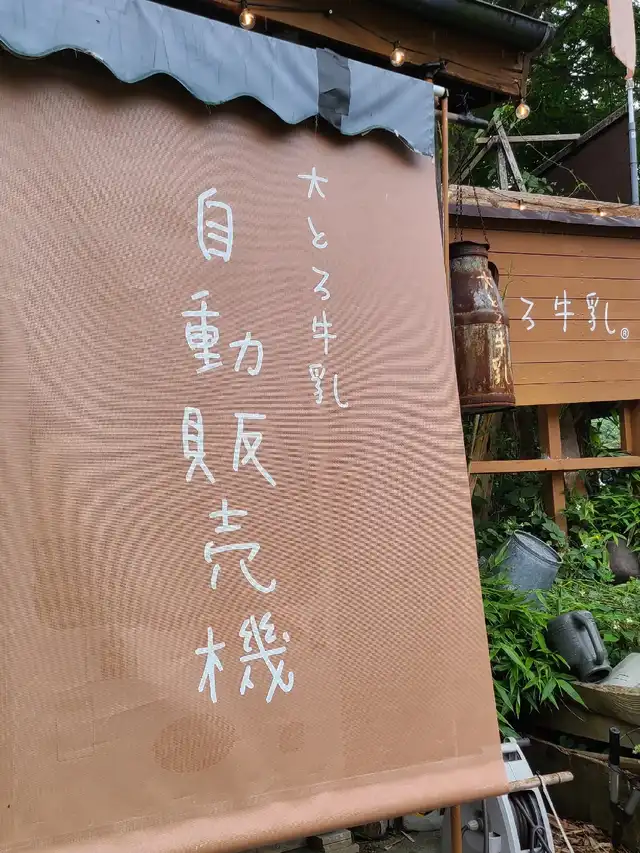 大とろ牛乳
自動販売機
ろ牛乳®